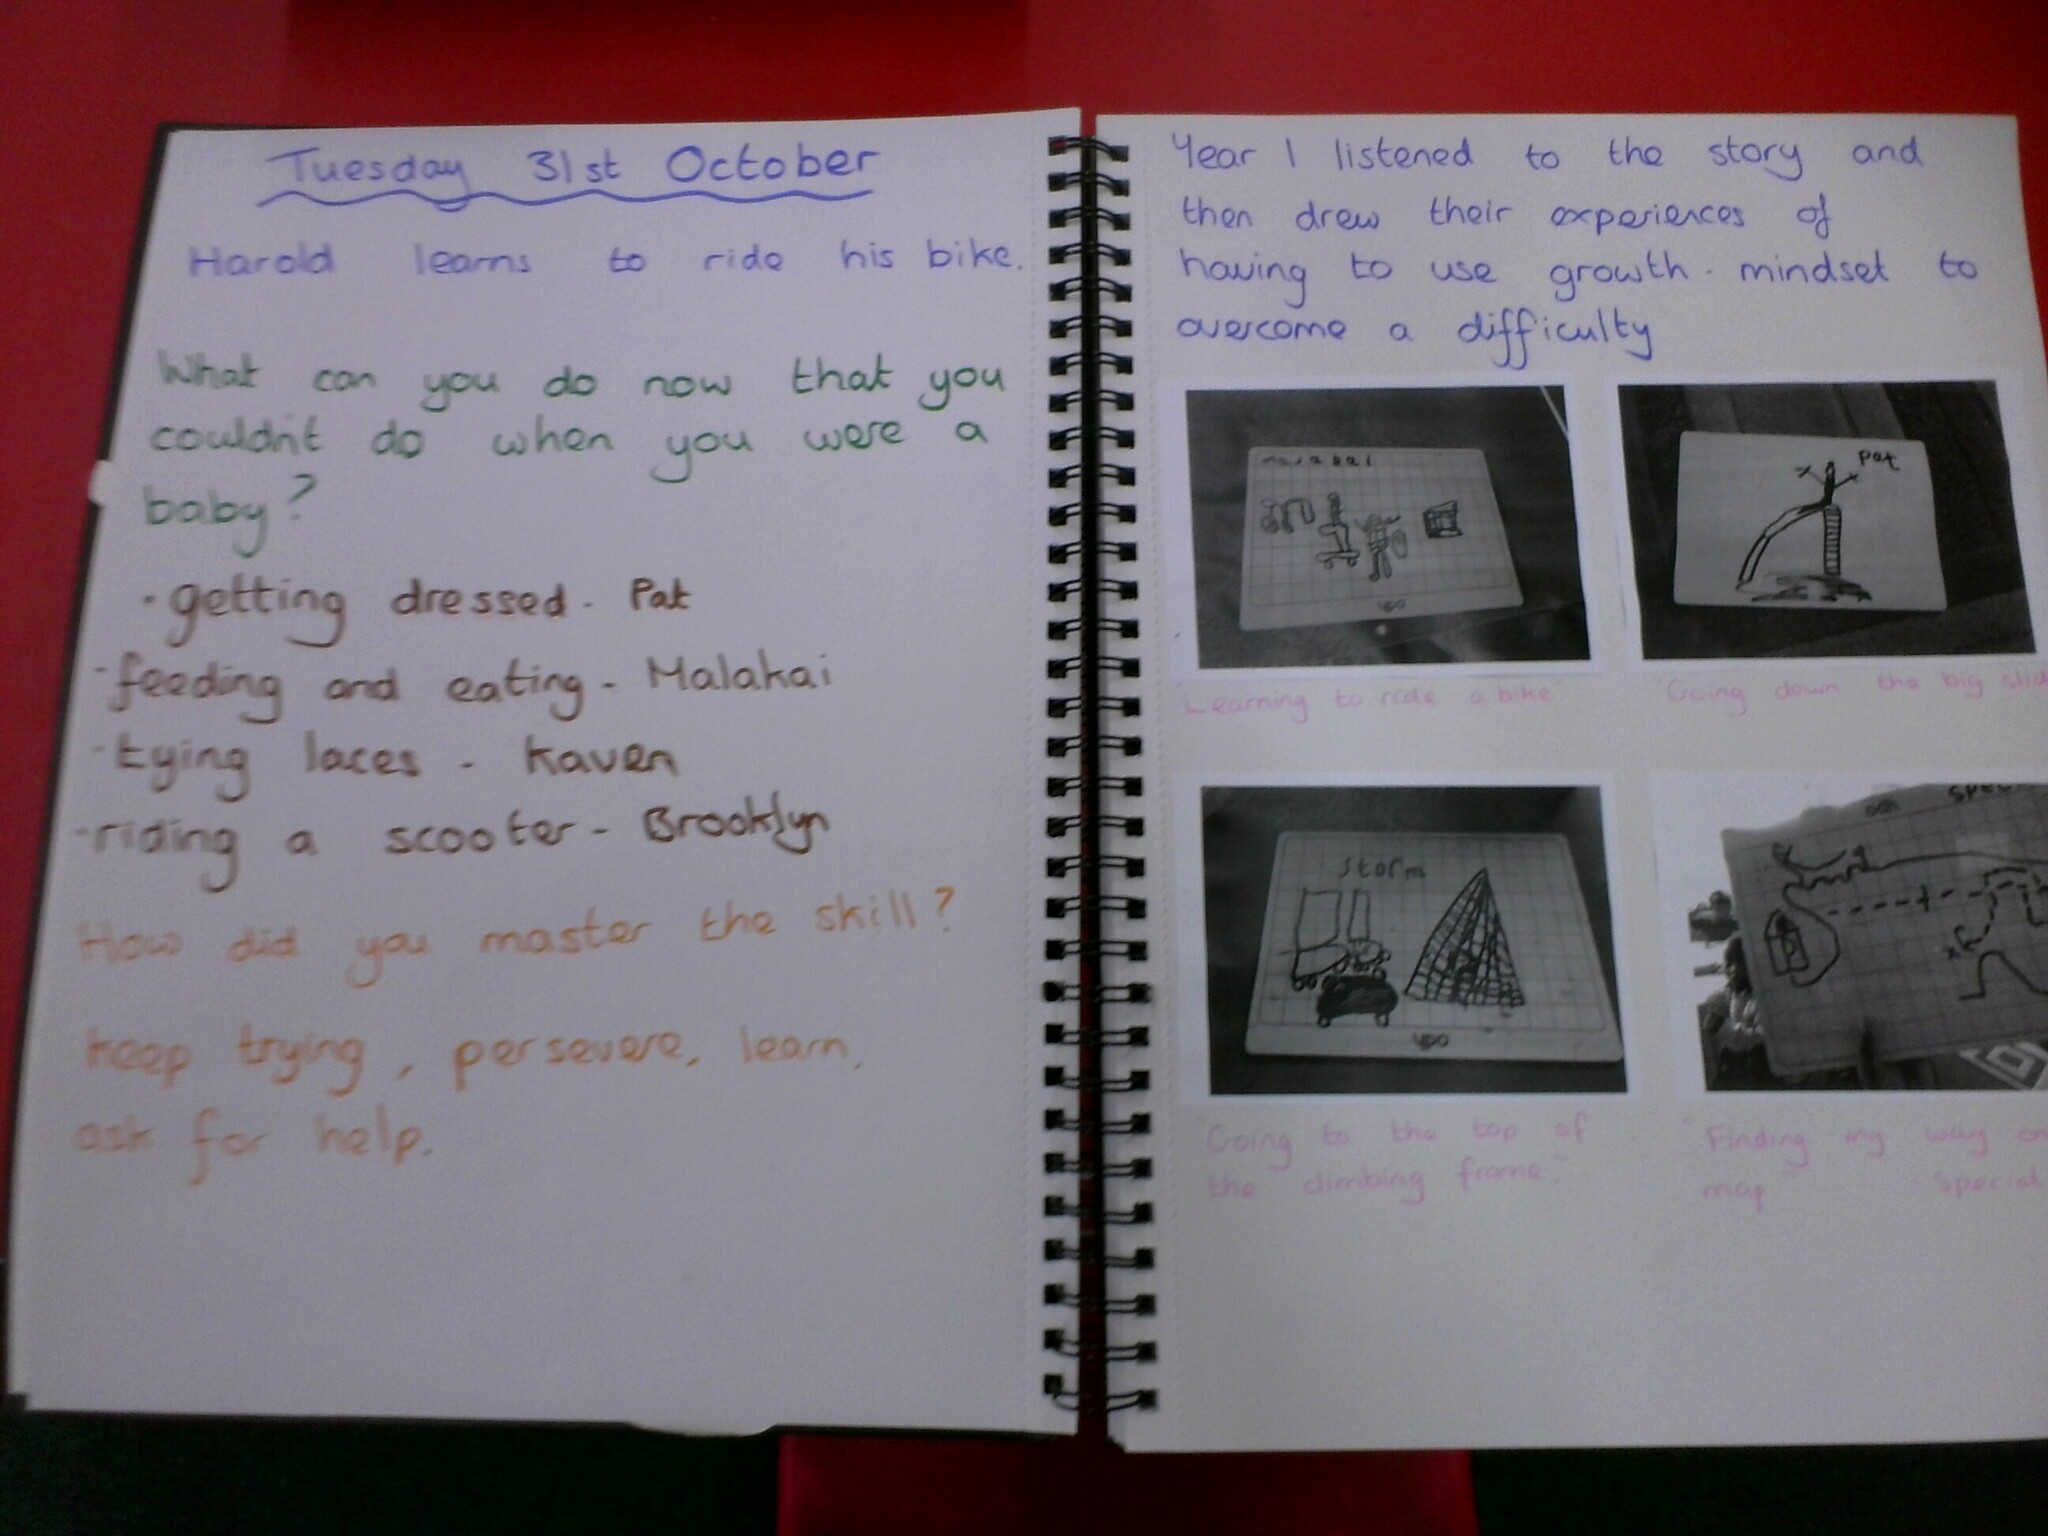 Tuesday 31st October
Harold learns to ride his bike.
What can you do now that you
couldn't do when you were a
baby?
· getting dressed - Pat
- feeding and eating - Malakai
- tying laces - Kaven
- riding a scooter - Brooklyn
How did you master the skill?
keep trying, persevere, learn,
ask for help.
Year 1 listened to the story and
then drew their experiences of
having to use growth - mindset to
overcome a difficulty
malakai
YPO
Pat
"Learning to ride a bike"
"Going down the big slid
storm
YPO
"Going to the top of
the climbing frame"
"Finding my way on
map" - Special